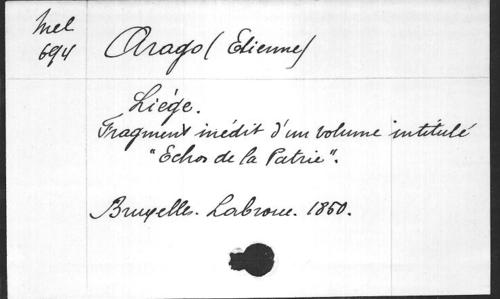 Mel
694
Arago (Etienne)
Liége.
Fragment inédit d'un volume intitulé
"Echos de la Patrie".
Bruxelles. Labroue. 1850.